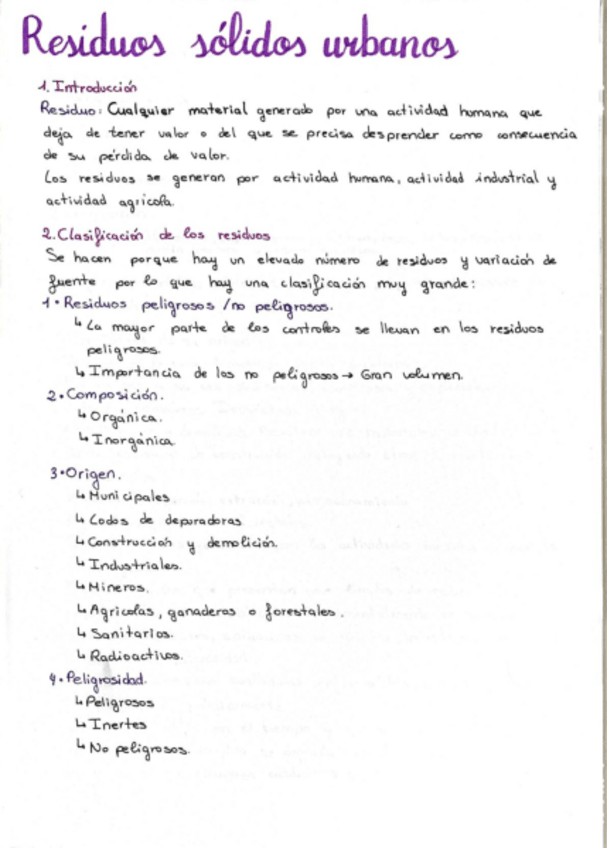 Residuos sólidos urbanos
1. Introducción
Residuo: Cualquier material generado por una actividad humana que
deja de tener valor o del que se precisa desprender como consecuencia
de su pérdida de valor.
Los residuos se generan por actividad humana, actividad industrial y
actividad agrícola.
2. Clasificación de los residuos
Se hacen porque hay un elevado número de residuos y variación de
fuente por lo que hay una clasificación muy grande:
1• Residuos peligrosos /no peligrosos.
↳ La mayor parte de los controles se llevan en los residuos
peligrosos.
↳ Importancia de los no peligrosos → Gran volumen.
2• Composición.
↳ Orgánica.
↳ Inorgánica.
3•Origen.
↳ Municipales
↳ Lodos de depuradoras
↳ Construcción y demolición.
↳ Industriales.
↳ Mineros.
↳ Agrícolas, ganaderos o forestales.
↳ Sanitarios.
↳ Radioactivos.
4• Peligrosidad.
↳ Peligrosos
↳ Inertes
↳ No peligrosos.